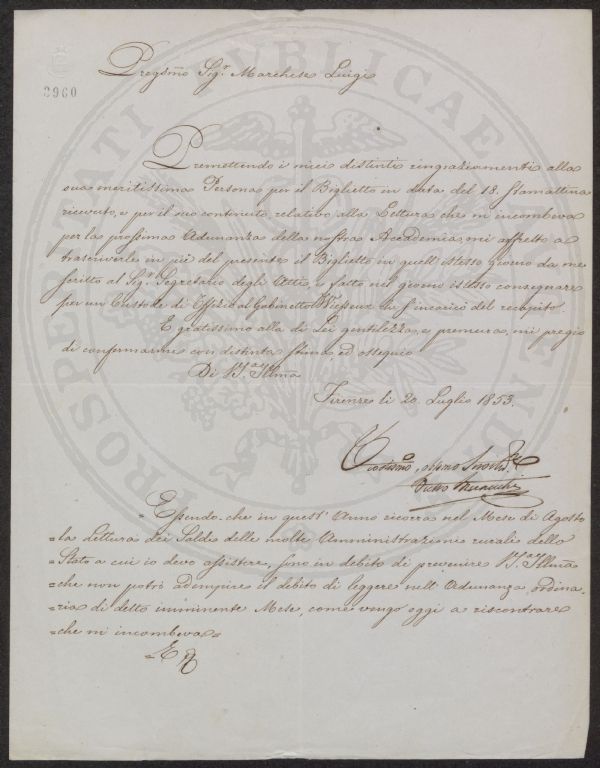 3960
Pregsmo Sigr. Marchese Luigi
Premettendo i miei distinti ringraziamenti alla
sua meritissima Persona per il Biglietto in data del 18. stamattina
ricevuto, e per il suo contenuto relativo alla Lettura che m'incombeva
per la prossima Adunanza della nostra Accademia, mi affretto a
trascriverle in piè del presente il Biglietto in quell'istesso giorno da me
scritto al Sigr. Segretario degli Atti, e fatto nel giorno istesso consegnare
per un Custode di Ufizio al Gabinetto Vieseux che s'incaricò del recapito.
E gratissimo alla di Lei gentilezza, e premura, mi pregio
di confermarmi con distinta stima ed ossequio
Di V.a Illma
Firenze li 20 Luglio 1853.
Pietro
= Essendo che in quest'Anno ricorra nel Mese di Agosto
= la Lettura dei Saldi delle molte Amministrazioni rurali dello
= Stato a cui io devo assistere, sono in debito di prevenire V.a Illma
= che non potrò adempire il debito di leggere nell'Adunanza ordina-
= ria di detto imminente Mese, come vengo oggi a riscontrare
= che mi incombeva =
= E
PROSPERITATI PUBLICAE AUGENDAE